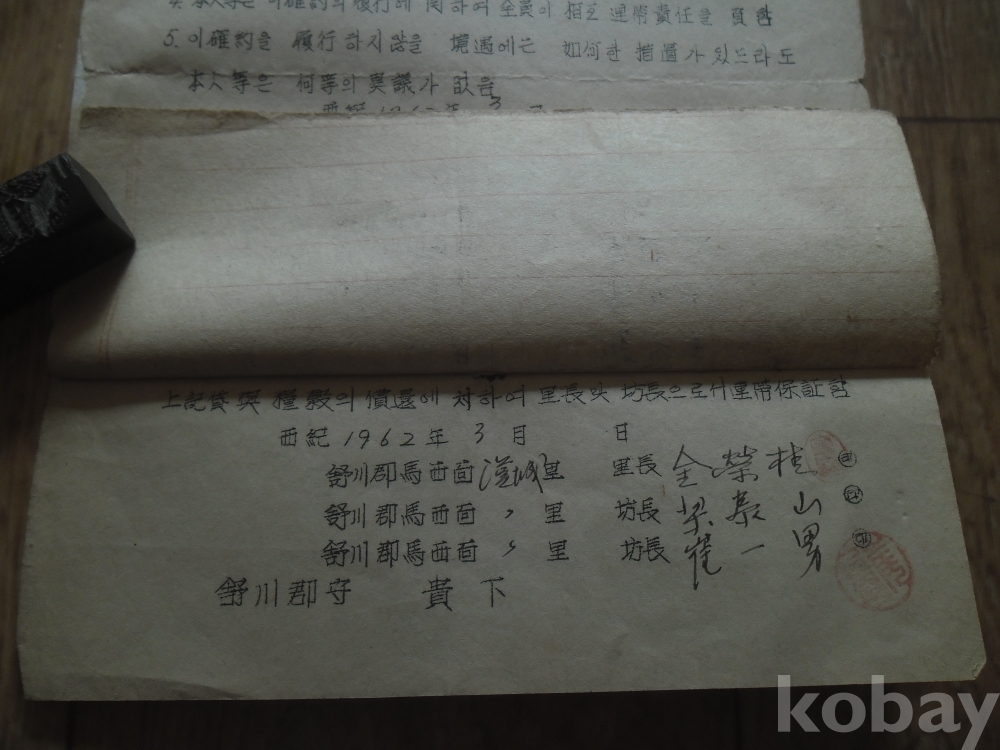 4. 本人等은 이確約의 履行에 関하여 全員이 相互 連帶責任을 負함
5. 이確約을 履行하지않을 境遇에는 如何한 措置가 있드라도
本人等은 何等의 異議가 없음
西紀 1962年 3
上記貸與糧穀의 償還에 対하여 里長및 坊長으로서 連帶保証함
西紀 1962年 3月 日
舒川郡馬西面 漢城里 里長 全榮植 ㊞
舒川郡馬西面 〃 里 坊長 梁泰山 ㊞
舒川郡馬西面 〃 里 坊長 崔一男 ㊞
舒川郡守 貴下
kobay